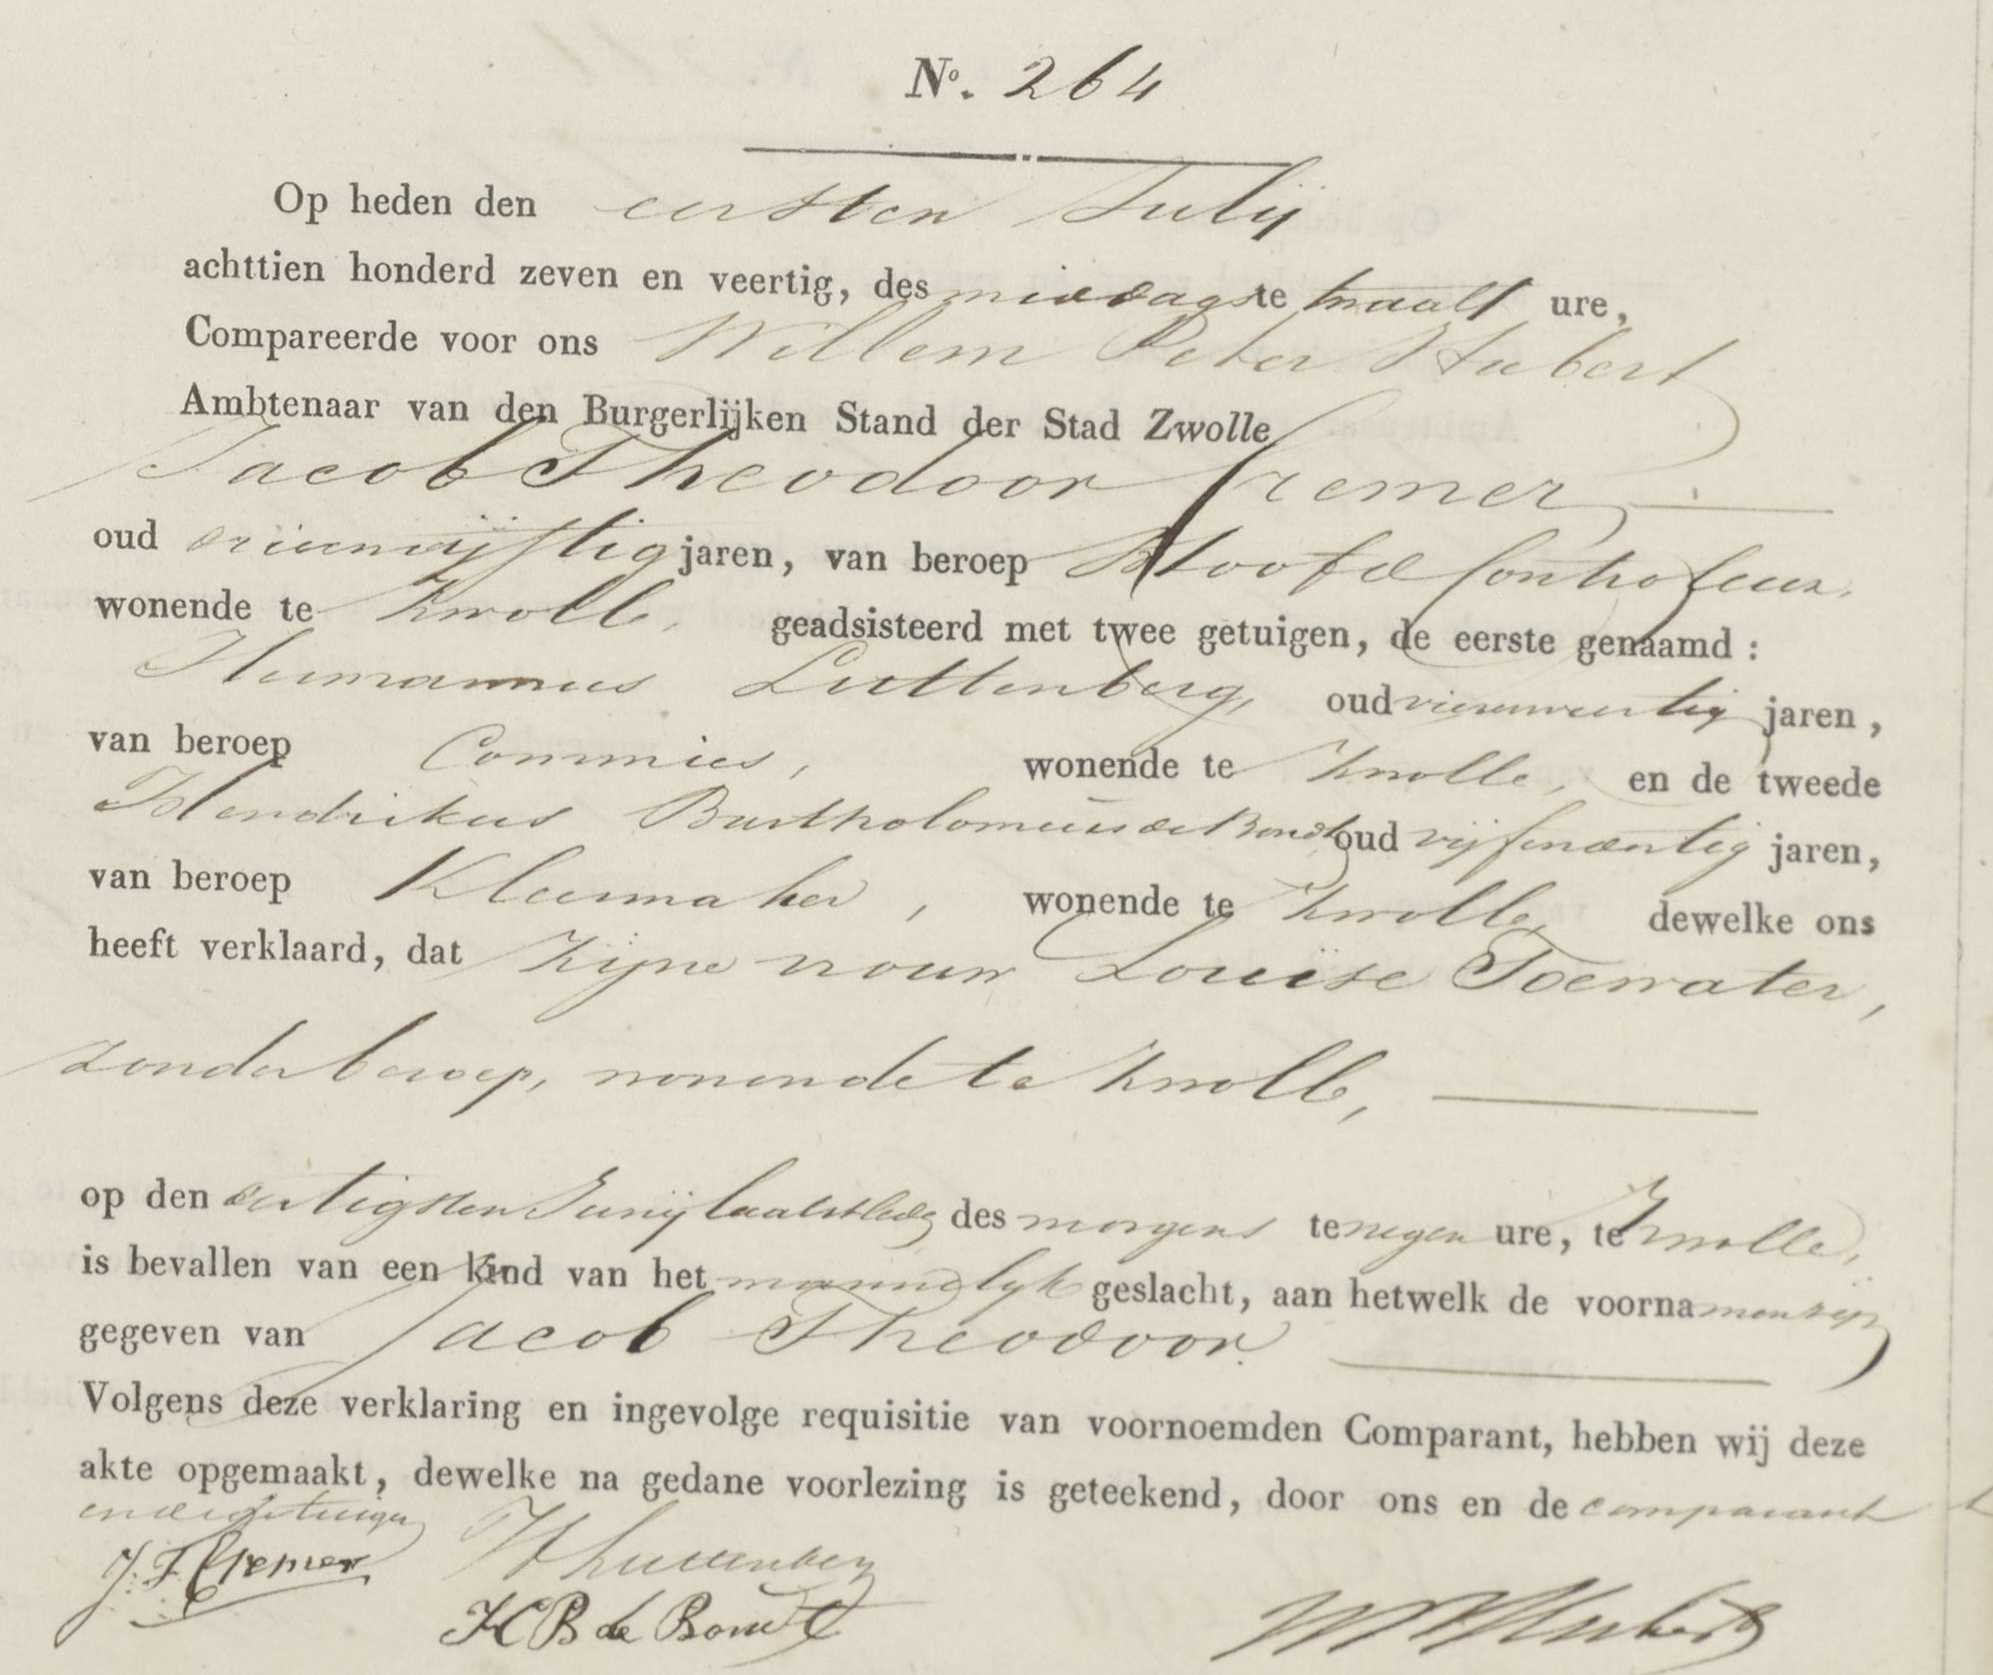 No. 264
Op heden den eersten Julij
achttien honderd zeven en veertig, des middags te twaalf ure,
Compareerde voor ons Willem Peter Hubert
Ambtenaar van den Burgerlijken Stand der Stad Zwolle
Jacob Theodoor Cremer
oud drieenvijftig jaren, van beroep Hoofd Controleur,
wonende te Zwolle, geadsisteerd met twee getuigen, de eerste genaamd :
Hermannus Luttenberg, oud vierenveertig jaren,
van beroep Commies, wonende te Zwolle, en de tweede
Hendrikus Bartholomeus de Bondt oud vijfendertig jaren,
van beroep Kleermaker, wonende te Zwolle, dewelke ons
heeft verklaard, dat zijne vrouw Louise Toewater,
zonder beroep, wonende te Zwolle,
op den dertigsten Junij laatstleden des morgens te negen ure, te Zwolle,
is bevallen van een kind van het mannelijk geslacht, aan hetwelk de voornamen zijn
gegeven van Jacob Theodoor.
Volgens deze verklaring en ingevolge requisitie van voornoemden Comparant, hebben wij deze
akte opgemaakt, dewelke na gedane voorlezing is geteekend, door ons en de comparant
en de getuigen
J. T. Cremer H Luttenberg
H B de Bondt W P Hubert